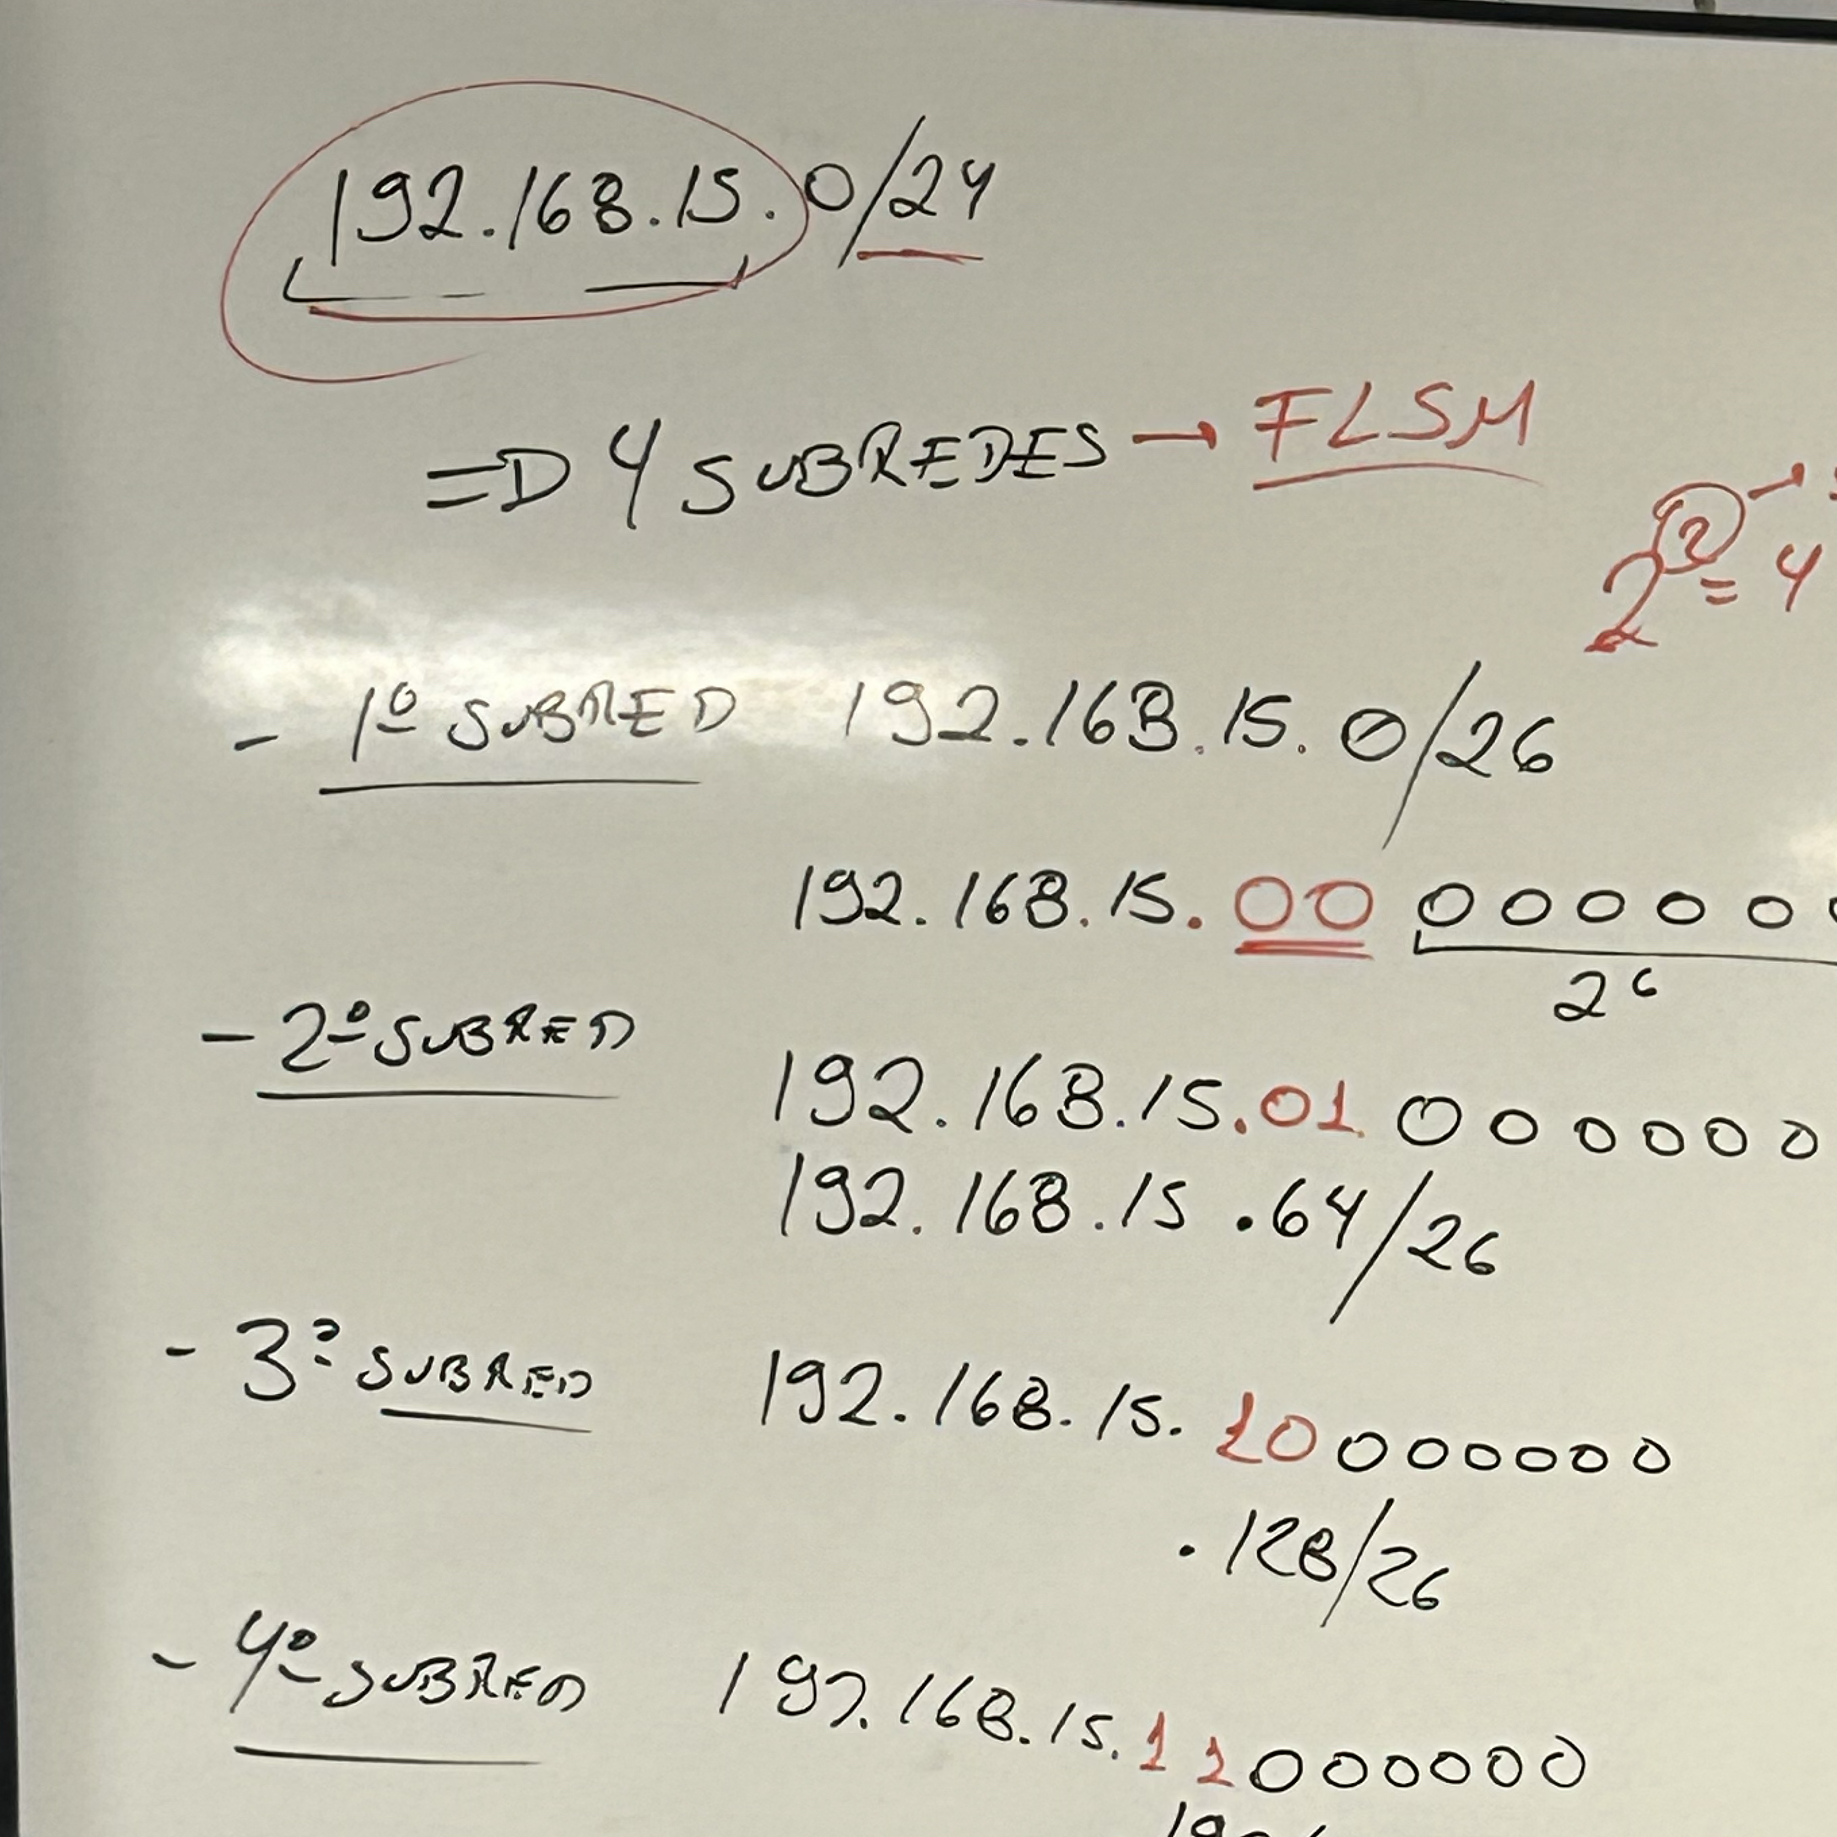 192.168.15.0/24
=D 4 SUBREDES → FLSM
2² = 4
- 1º SUBRED 192.168.15.0/26
192.168.15.00 00000
2⁶
- 2º SUBRED
192.168.15.01 000000
192.168.15.64/26
- 3º SUBRED 192.168.15.10000000
.128/26
- 4º SUBRED 192.168.15.11000000